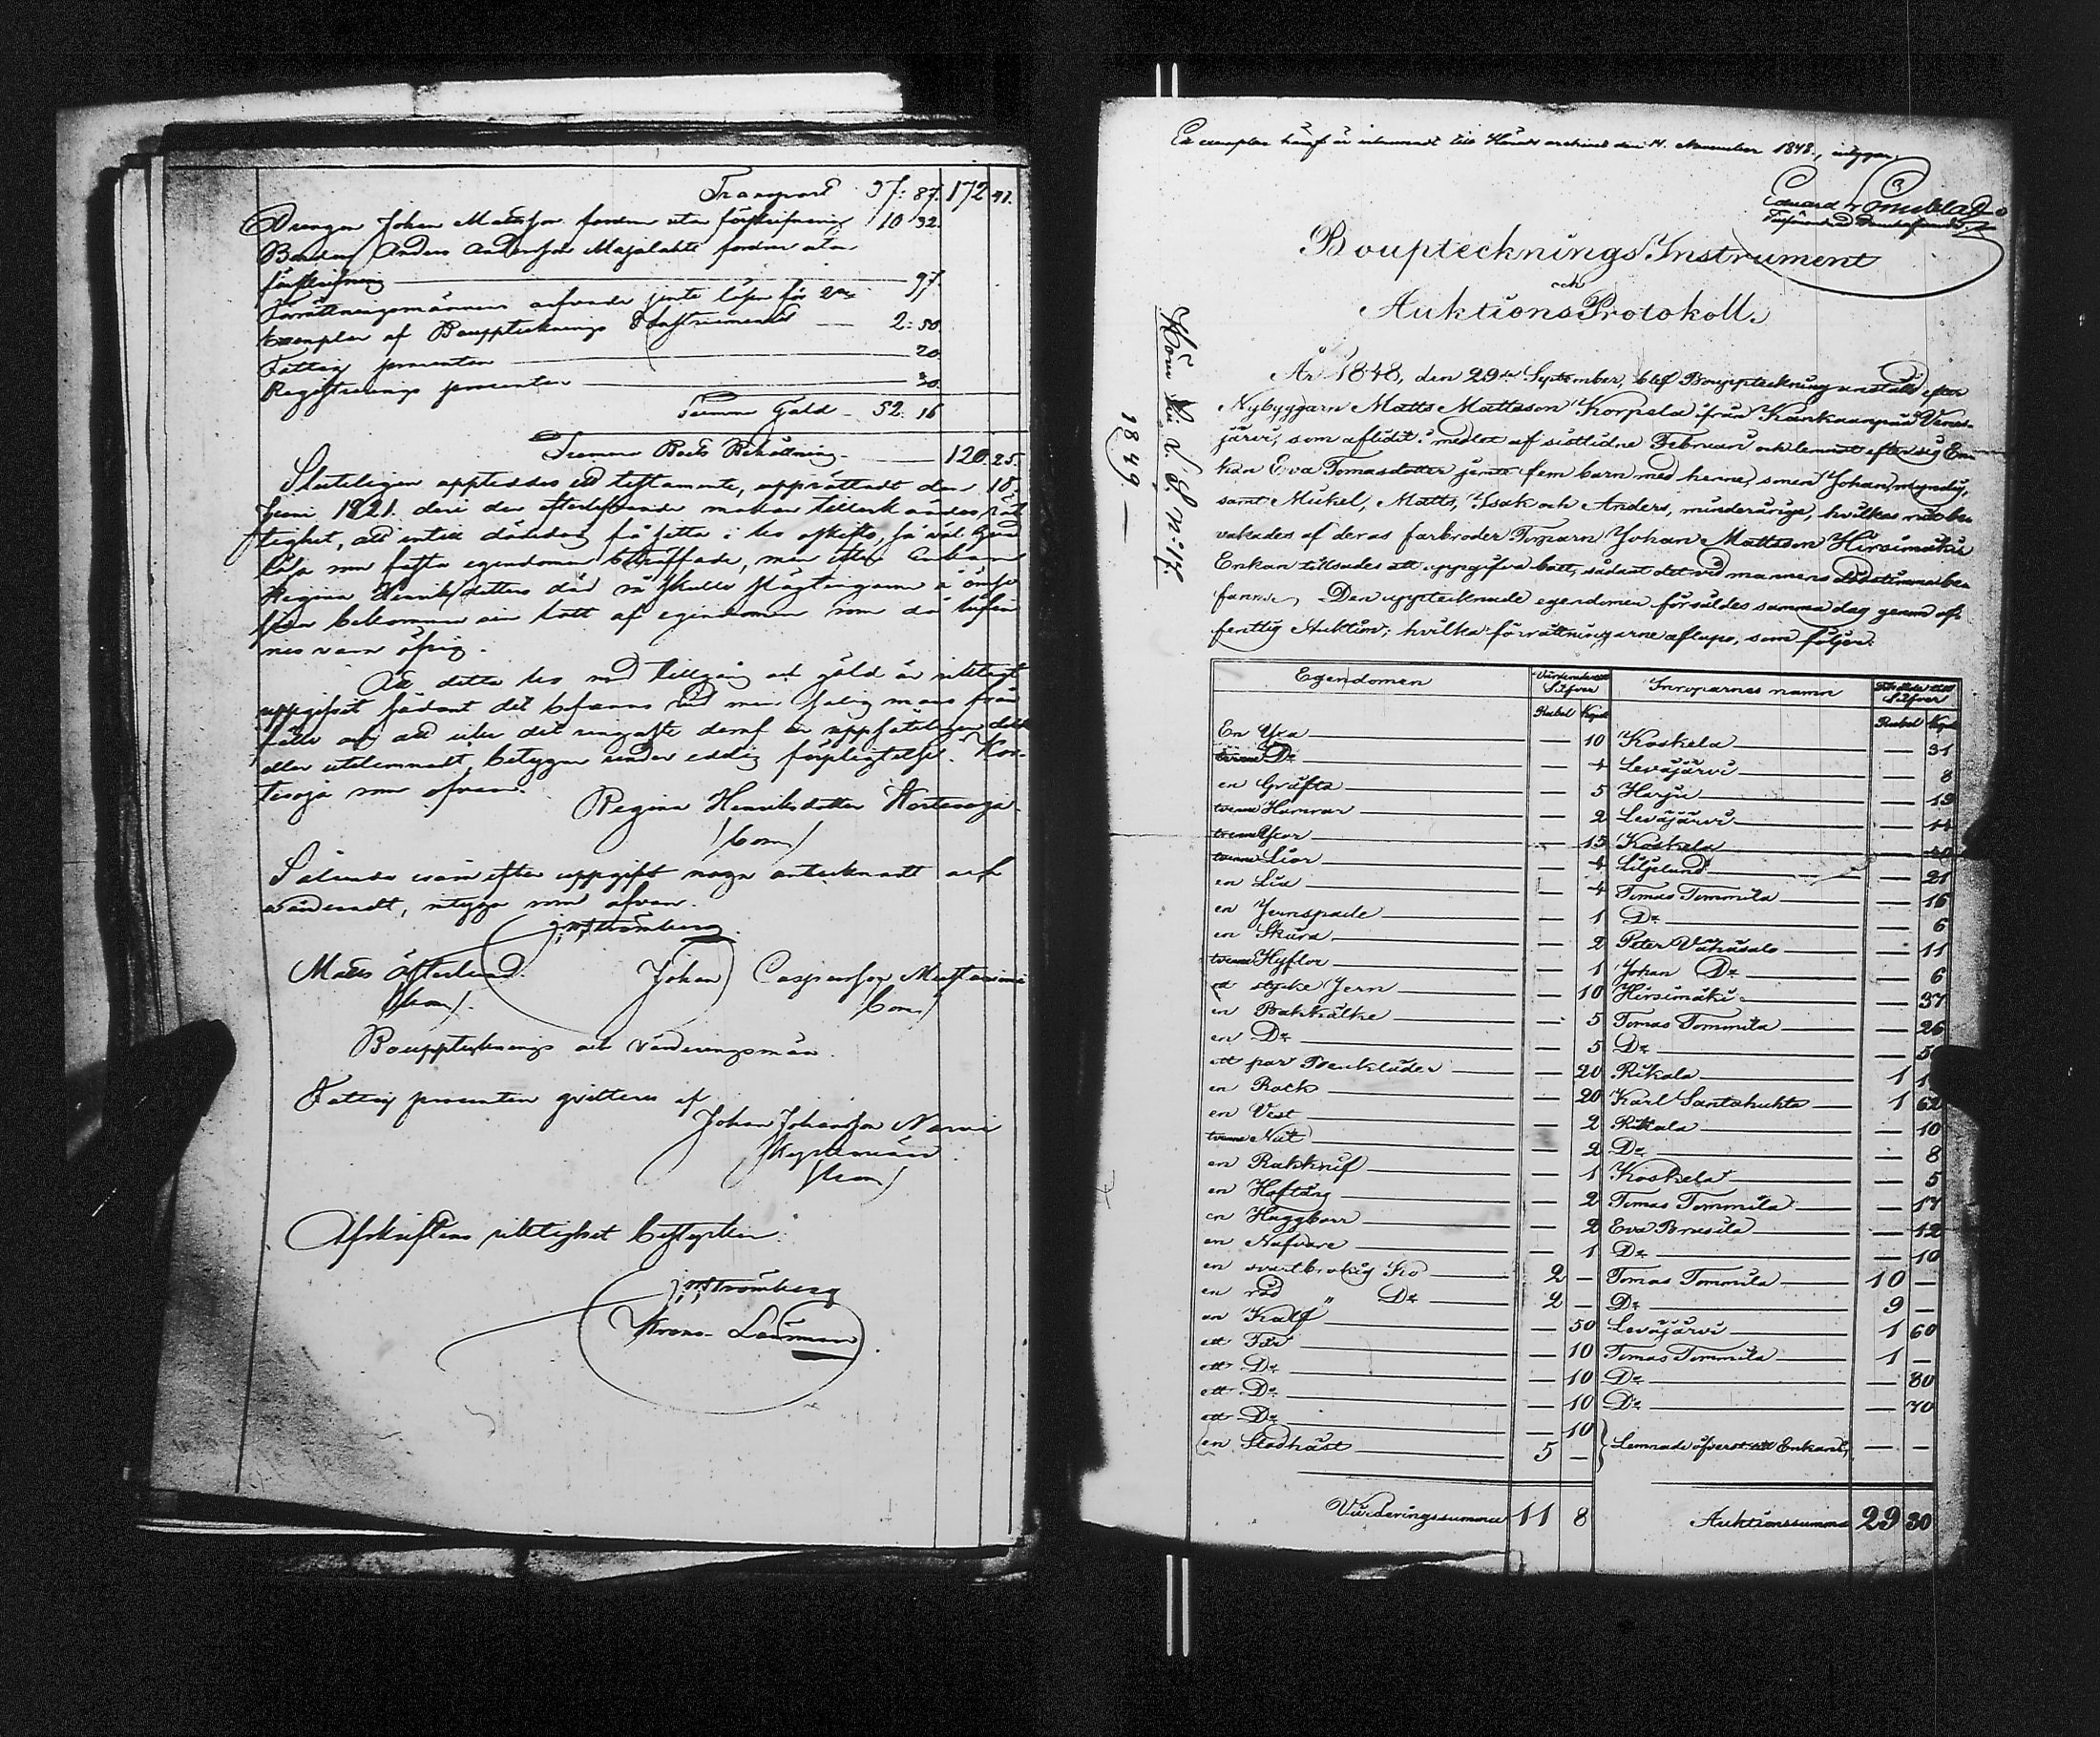 Transport 37: 87. 172 41.
Drengen Johan Mattsson fordrar utan förskrifning 10 32.
Bonden Anders Andersson Majalahti fordrar utan
förskrifning 97.
Förrättningsmännen arfvode jemte lösen för 2ne
Exemplar af Boupptecknings Instrumentet 2: 50.
Fattig procenten 20.
Registrerings procenten 30.
Summa Gäld 52: 16
Summa Boets Behållning 120. 25.
Sluteligen uppteddes ett testamente, upprättadt den 18
Juni 1821. deri den efterlefvande makan tillerkändes rät
tighet, att intill dödedag få sitta i bo oskifto, så väl hvad
lösa som fasta egendomen beträffade, men efter Enkan
Regina Henriksdotters död skulle slägtingarne å ömse
sidor bekomma sin lott af egendomen som då befin
nes vara öfrig.
Att detta bo med tillgång och gäld är riktigt
uppgifvet sådant det befanns vid min salig mans från
fälle och att icke det ringaste deraf är uppsåteligen dolt
eller utelemnadt, betygar under edelig förpligtelse. Kor-
tesoja som ofvan.
Regina Henriksdotter Kortesoja
/bom/
Sålunda vara efter uppgift noga antecknadt och
värderadt, intyga som ofvan.
Strömberg.
Matts Österlund Johan Caspersson
/bom/. /bom/
Boupptecknings och Värderingsmän.
Fattig procenten qvitteras af
Johan Johansson
/bom/
Afskriftens riktighet bestyrker:
Strömberg
Krono-Länsman.
Ett exemplar häraf är inlemnadt till Härads archivet den 14. November 1848., intygar,
Eduard
Boupptecknings Instrument
och
Auktions Protokoll.
N:17.
1849 —
År 1848, den 29de September, blef Bouppteckning anstäld efter
Nybyggarn Matts Mattsson Korpela ifrån Kankaanpää Venes-
järvi, som aflidit i medlet af sistlidne Februari och lemnat efter sig En-
kan Eva Tomasdotter jemte fem barn med henne, sonen Johan, myndig,
samt Mickel, Matts, Isak och Anders, minderårige, hvilkas rätt be
vakades af deras farbroder Torparn Johan Mattsson Hirsimäki.
Enkan tillsades att uppgifva boet, sådant det vid mannens dödstimma be
fanns. Den upptecknade egendomen försåldes samma dag genom of-
fentlig Auktion; hvilka förrättningarne aflupo, som följer:
Egendomen Värderades till Silfver Inroparnes namn Såldes till Silfver
Rubel Kop. Rubel Kop.
En Yxa — 10 Koskela — 31
en Do — 4 Leväjärvi — 8
en Gräfta — 5 Harju — 19
tvenne Hamrar — 2 Leväjärvi — 14
tvenne Yxor — 15 Koskela
tvenne Liar — 4 Liljelund — 21
en Lia — 4 Tomas Tommila — 16
en Jernspade — 1 Do — 6
en Skära — 2 Peter Vähäsalo — 11
tvenne Hyflor — 1 Johan Do — 6
ett stycke Jern — 10 Hirsimäki — 37
en Bakkälke — 5 Tomas Tommila — 26
en Do — 5 Do
ett par Benkläder — 20 Rikala 1
en Rock — 20 Karl Santahuhta 1 62
en Vest — 2 Rikala — 10
tvenne Nät — 2 Do — 8
en Rakknif — 1 Koskela — 5
en Hoftång — 2 Tomas Tommila — 17
en Huggborr — 2 Eva Brusila — 12
en Nafvare — 1 Do — 10
en svartbrokig Ko 2 — Tomas Tommila 10 —
en röd " Do 2 — Do 9 —
en Kalf — 50 Leväjärvi 1 60
ett Får — 10 Tomas Tommila 1 —
ett Do — 10 Do — 80
ett Do — 10 Do — 70
ett Do — 10
en Stodhäst 5 — Lemnades oförsåldt till Enkan — —
Värderingssumma 11 8 Auktionssumma 29 30